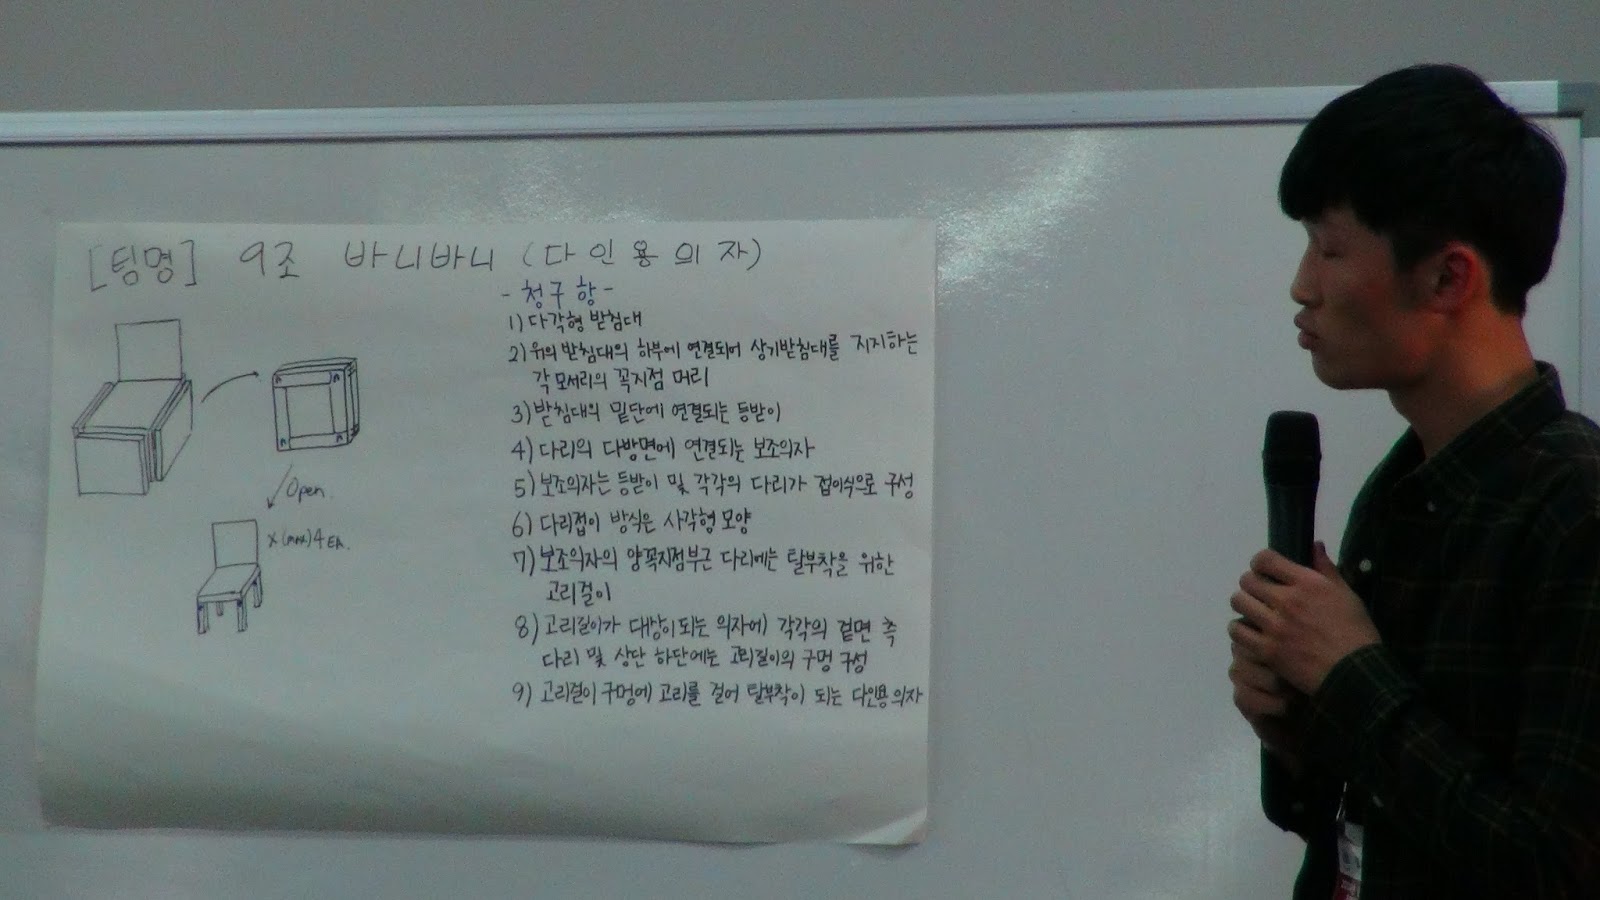 [팀명] 9조 바니바니 (다인용의자)
- 청구항 -
1) 다각형 받침대
2) 위의 받침대의 하부에 연결되어 상기받침대를 지지하는
각 모서리의 꼭지점 머리
3) 받침대의 밑단에 연결되는 등받이
4) 다리의 다방면에 연결되는 보조의자
5) 보조의자는 등받이 및 각각의 다리가 접이식으로 구성
6) 다리접이 방식은 사각형 모양
7) 보조의자의 양꼭지점부근 다리에는 탈부착을 위한
고리걸이
8) 고리걸이가 대상이 되는 의자에 각각의 겉면 측
다리 및 상단 하단에는 고리걸이의 구멍 구성
9) 고리걸이 구멍에 고리를 걸어 탈부착이 되는 다인용의자
Open.
x (max) 4 EA.